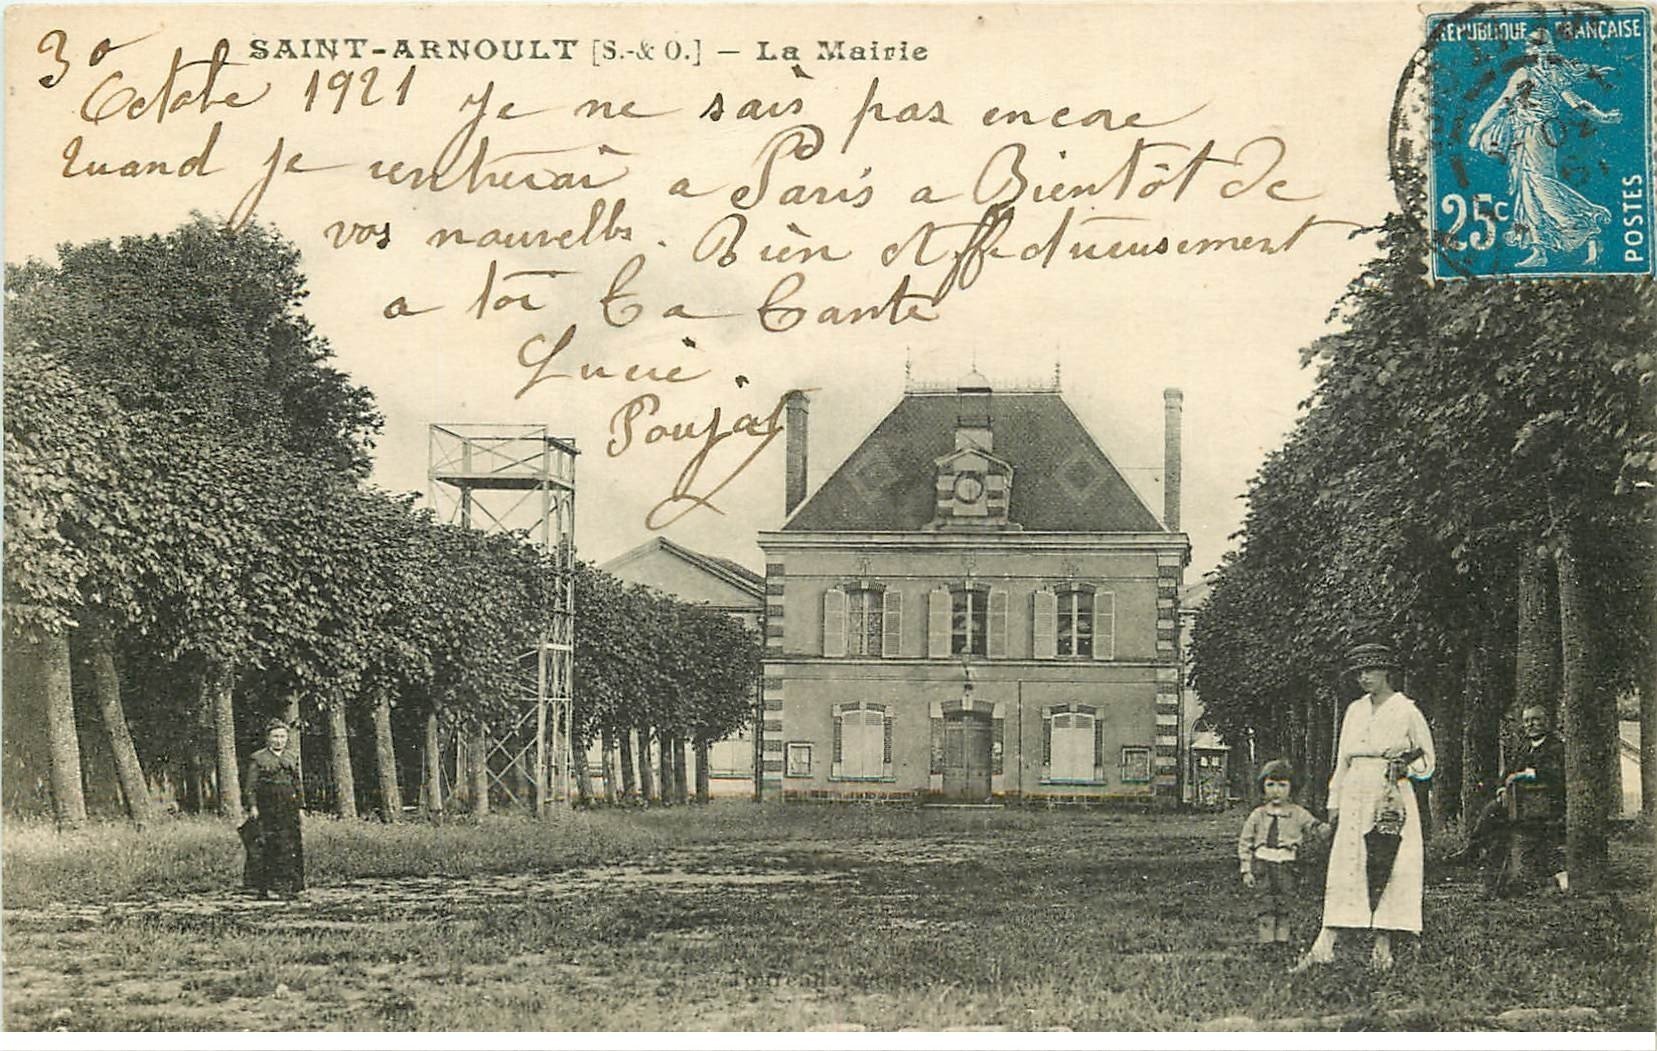 SAINT-ARNOULT [S.-& O.] — La Mairie
REPUBLIQUE FRANÇAISE
25c
POSTES
30
Octobe 1921 Je ne sais pas encore
quand je rentrerai a Paris a Bientôt de
vos nouvelles. Bien Affectueusement
a toi Ta Tante
Lucie.
Poujal